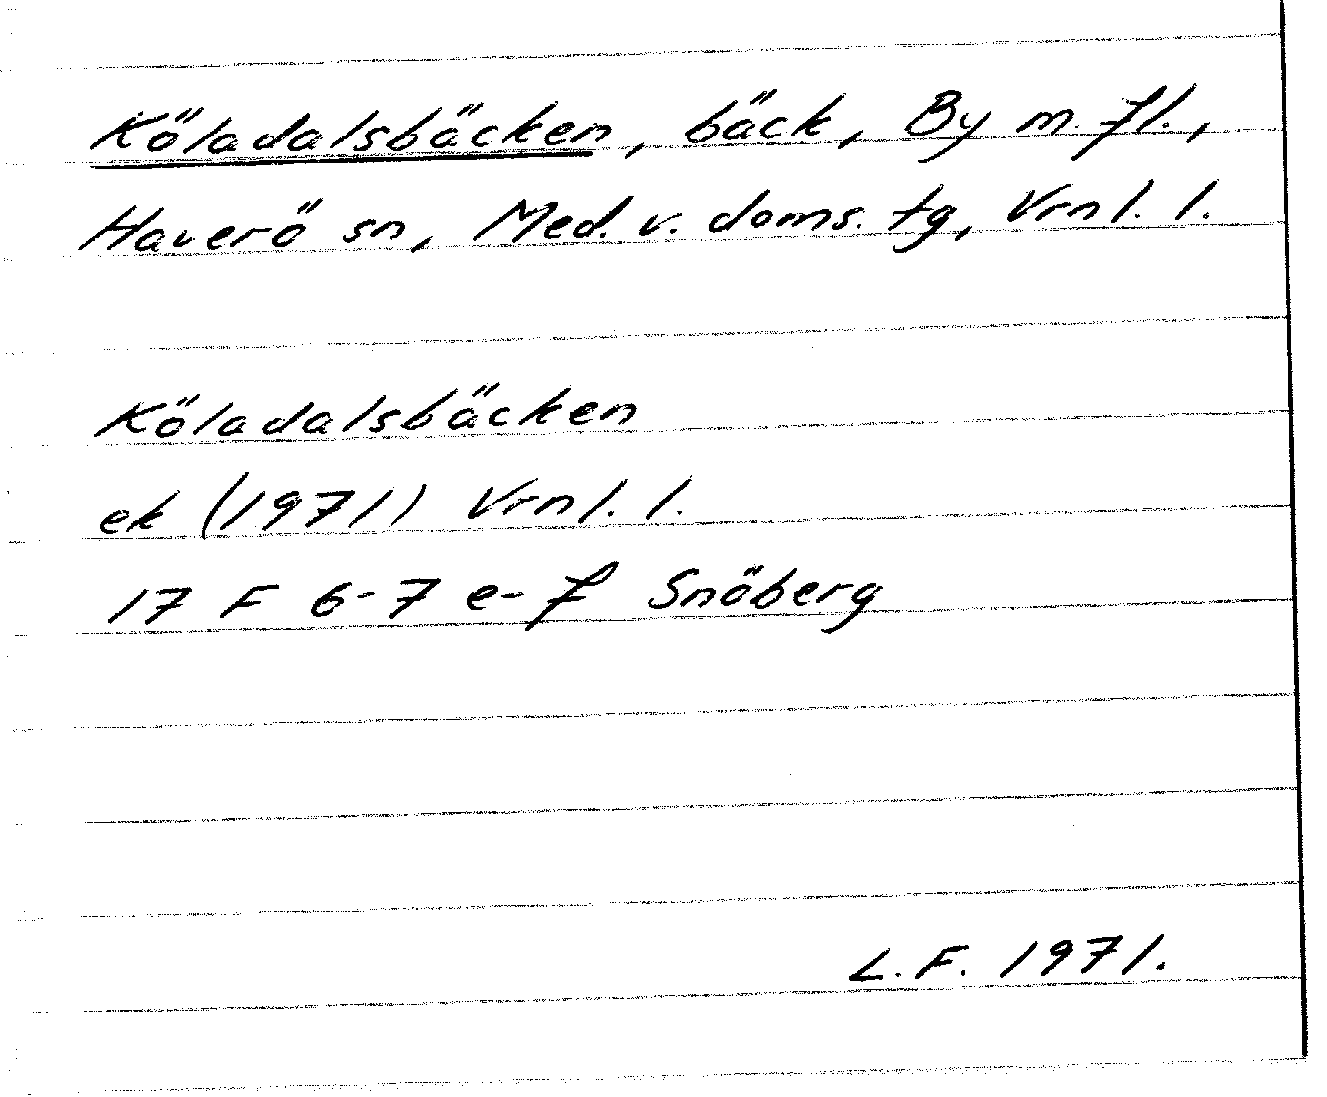 Köladalsbäcken, bäck, By m. fl.,
Haverö sn, Med. v. doms. tg, Vrnl. l.
Köladalsbäcken
ek (1971) Vrnl. l.
17 F 6-7 e-f Snöberg
L.F. 1971.